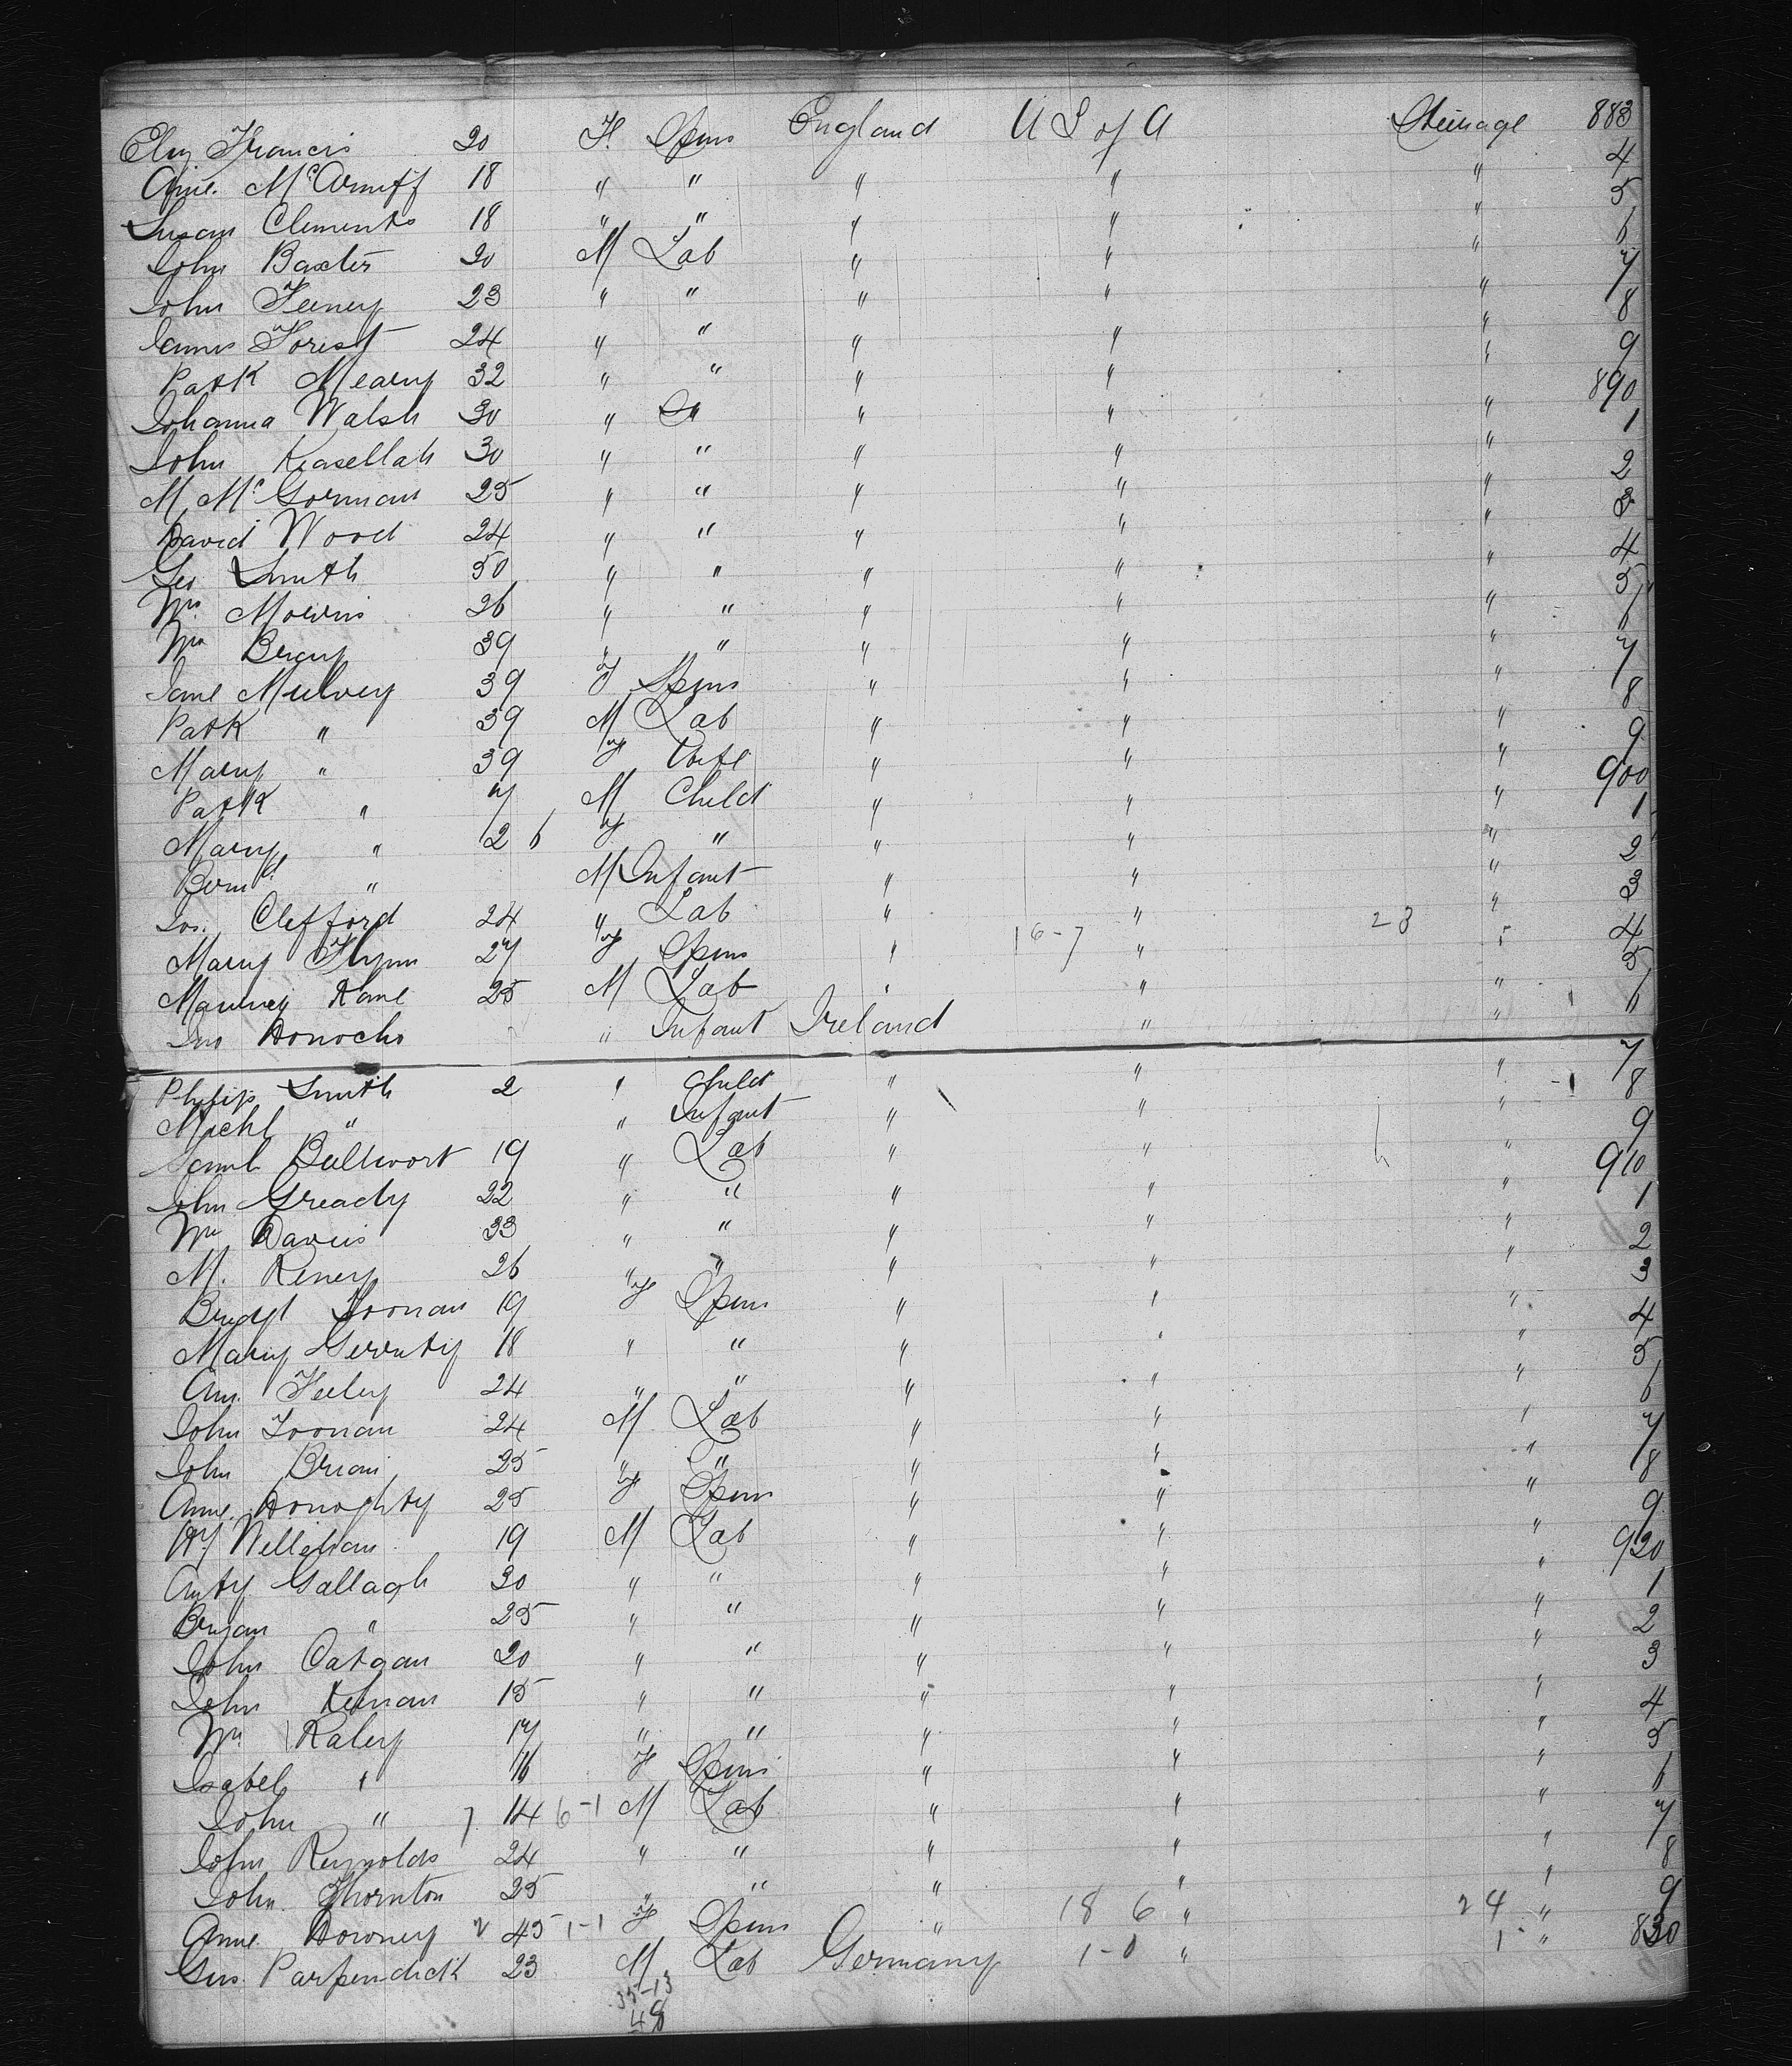 Eliz Francis 20 F. Spins England U S of A Steerage 883
Anne. McArniff 18 " " " " " 4
Susan Clements 18 " " " " " 5
John Baxter 20 M Lab " " " 6
John Feeney 23 " " " " " 7
James Forest 24 " " " " " 8
Patk Meany 32 " " " " " 9
Johanna Walsh 30 " " " " 890
John Keasellah 30 " " " " " 1
M McGorman 25 " " " " " 2
David Wood 24 " " " " " 3
Geo Smith 50 " " " " " 4
Wm Morris 26 " " " " " 5
Wm Bray 39 " " " " " 6
Jane Mulvey 39 F Spins " " " 7
Patk " 39 M Lab " " " 8
Mary " 39 F Wife " " " 9
Patk " 7 M Child " " " 900
Mary " 2 6 F " " " " 1
Bernd " M Infant " " " 2
Jos. Clefford 24 " Lab " " 23 " 3
Mary Flynn 27 F Spins " 16-7 " " 4
Manney Kane 25 M Lab " " " 5
Jno Donocho " Infant Ireland " " 6
Philip Smith 2 " Child " " " 7
Michl " " Infant " " " 8
Saml Bullwort 19 " Lab " " " 9
John Gready 22 " " " " " 910
Wm Davis 33 " " " " " 1
M. Keney 26 " " " " " 2
Bridgt Noonan 19 F Spins " " " 3
Mary Gerruty 18 " " " " " 4
Ann. Feeley 24 " " " " " 5
John Noonan 24 M Lab " " " 6
John Brian 25 " " " " " 7
Anne. Donoghty 25 F Spins " " " 8
Hy Nellghan 19 M Lab " " " 9
Anty Gallagh 30 " " " " " 920
Bryan " 25 " " " " " 1
John Catgan 20 " " " " " 2
John Kehnan 15 " " " " " 3
Wm Raley 17 " " " " " 4
Isabel " 16 F Spins " " " 5
John " 7 14 6-1 M Lab " " " 6
John Reynolds 24 " " " " " 7
John. Thornton 25 " " " " " 8
Anne. Downey 2 45 1-1 F Spins " 18 6 " 24 " 9
Gus. Parpendick 23 M Lab Germany 1-0 " 1 " 830
35-13
48